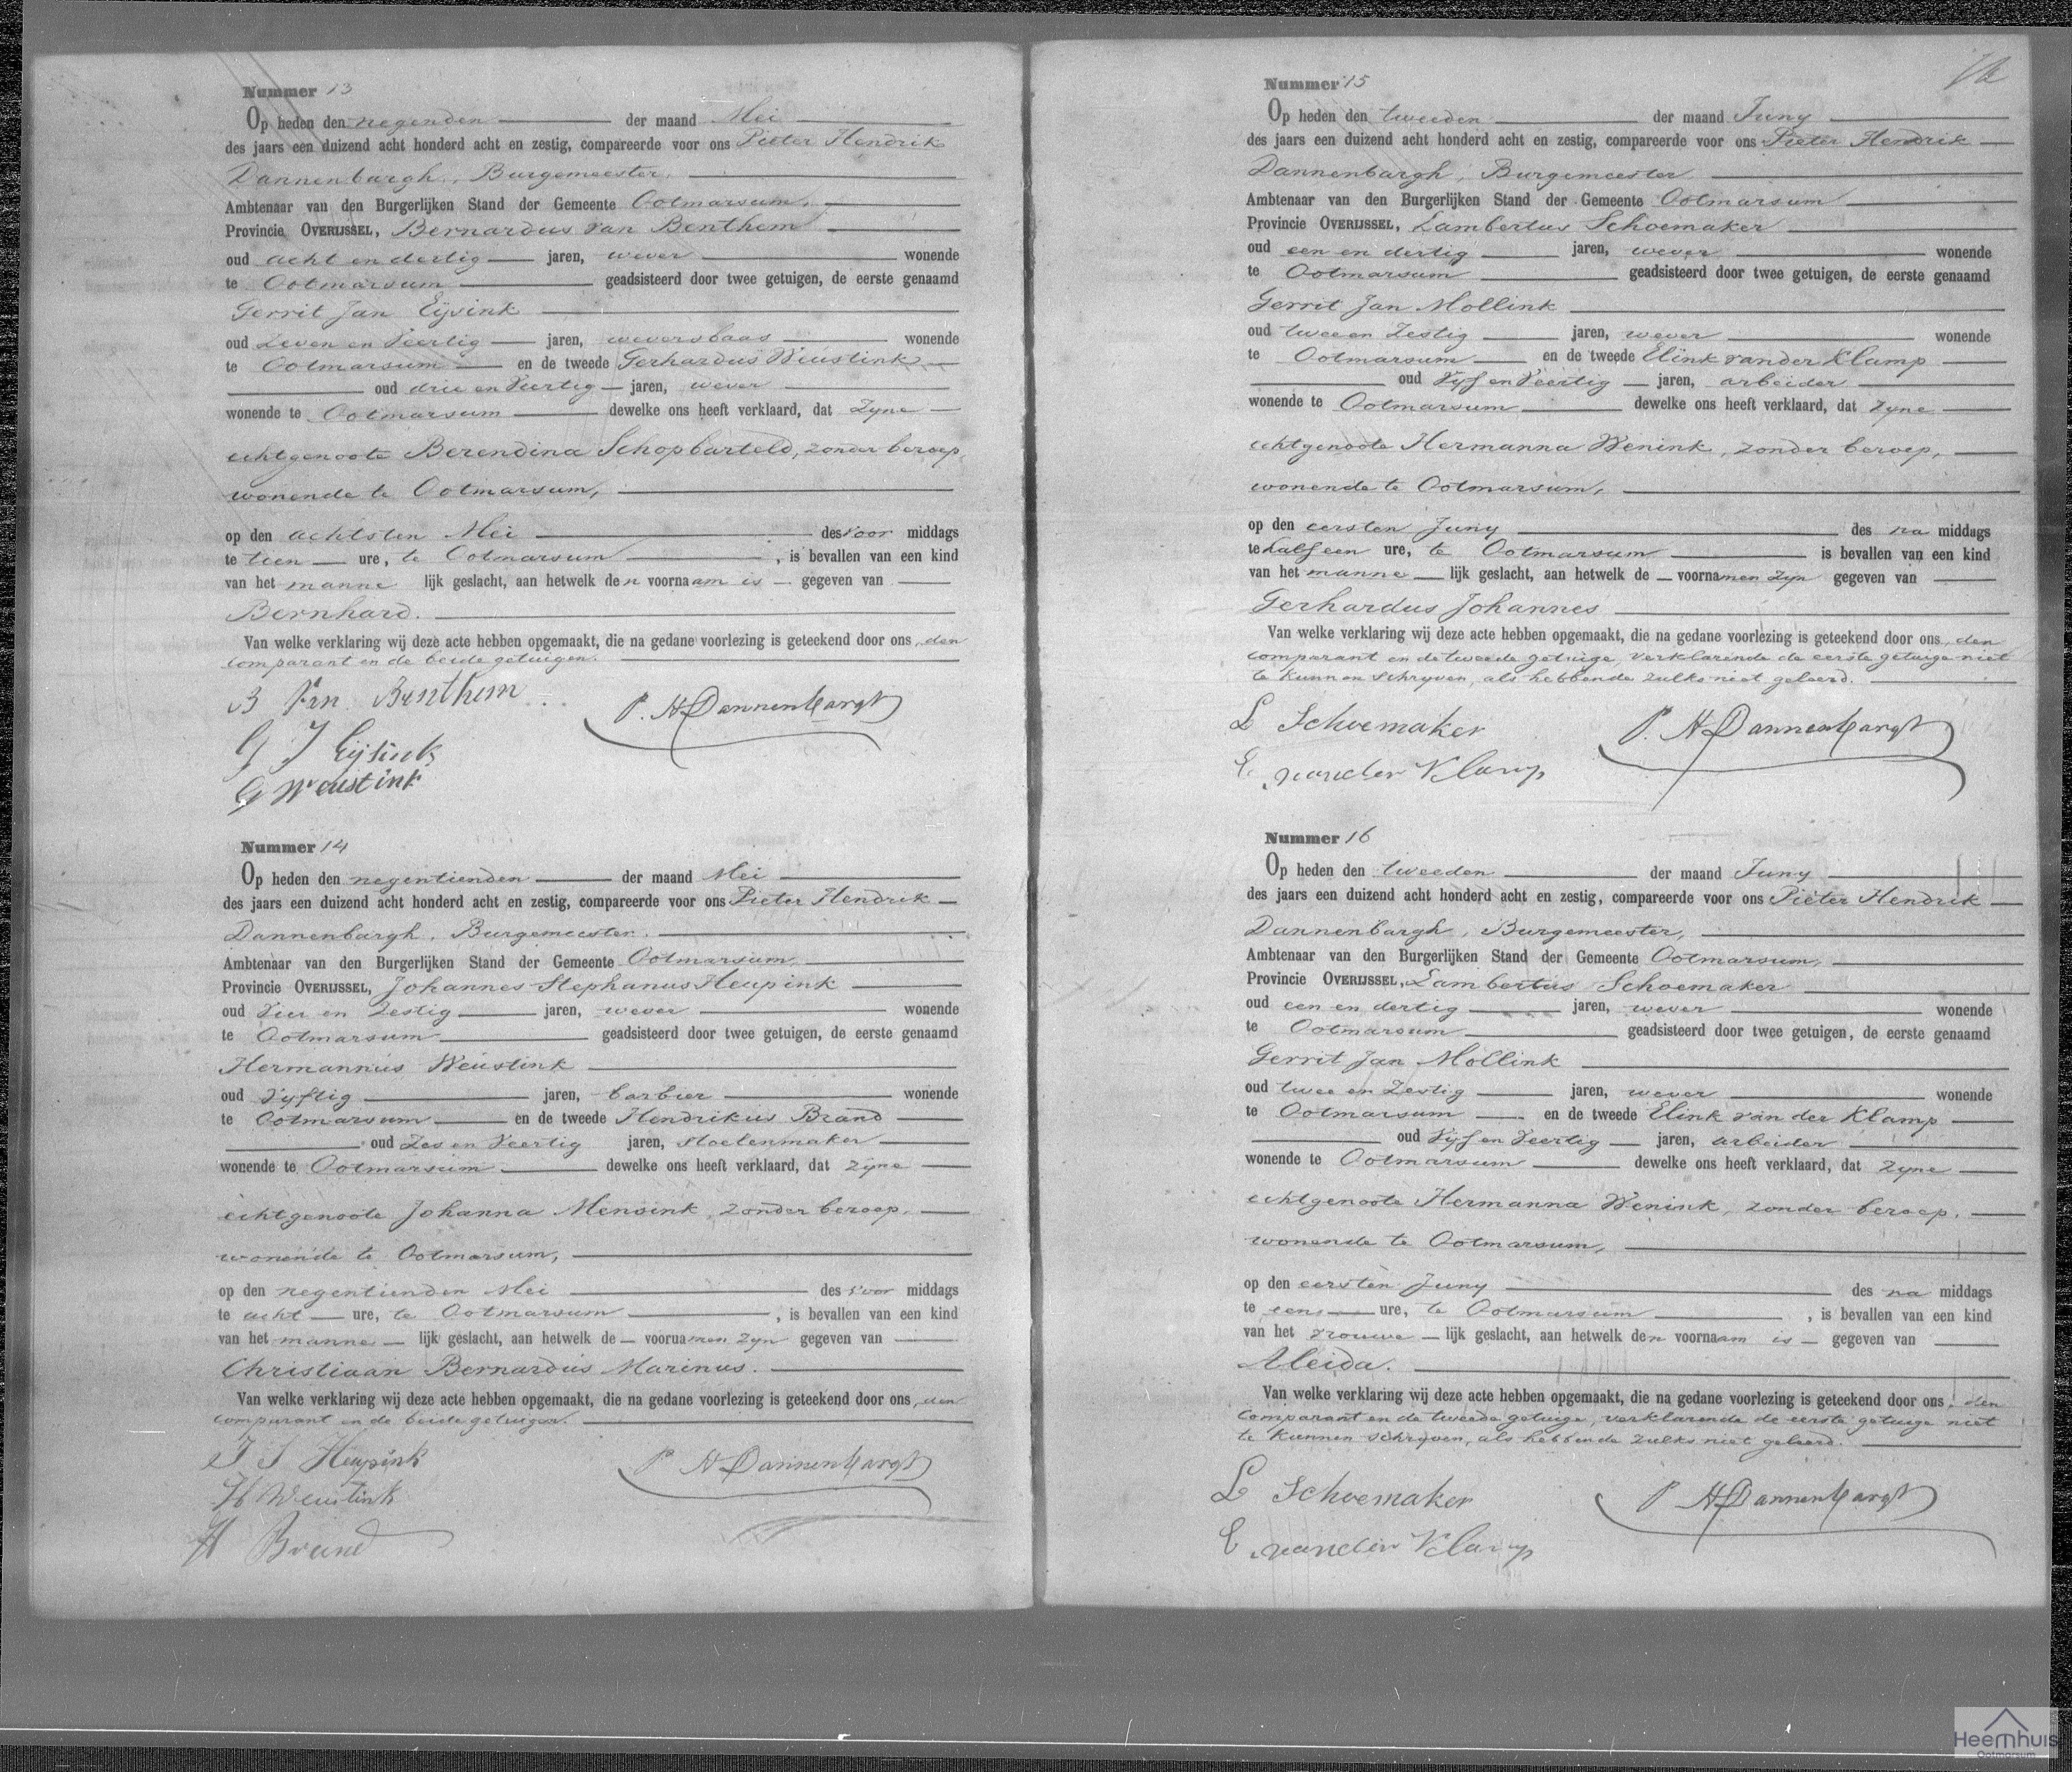 Nummer 13
Op heden den negenden der maand Mei
des jaars een duizend acht honderd acht en zestig, compareerde voor ons Pieter Hendrik
Dannenbargh, Burgemeester,
Ambtenaar van den Burgerlijken Stand der Gemeente Ootmarsum,
Provincie OVERIJSSEL, Bernardus van Benthem
oud acht en dertig jaren, wever wonende
te Ootmarsum geadsisteerd door twee getuigen, de eerste genaamd
Gerrit Jan Eijsink
oud zeven en Veertig jaren, weversbaas wonende
te Ootmarsum en de tweede Gerhardus Weustink
oud drie en Veertig jaren, wever
wonende te Ootmarsum dewelke ons heeft verklaard, dat zyne
echtgenoote Berendina Schopbarteld, zonder beroep,
wonende te Ootmarsum,
op den achtsten Mei des voor middags
te tien ure, te Ootmarsum, is bevallen van een kind
van het manne lijk geslacht, aan hetwelk den voornaam is gegeven van
Bernhard.
Van welke verklaring wij deze acte hebben opgemaakt, die na gedane voorlezing is geteekend door ons, den
comparant en de beide getuigen.
B Van Benthem
P. H Dannenbargh
G J Eijsink
G Weustink
Nummer 14
Op heden den negentienden der maand Mei
des jaars een duizend acht honderd acht en zestig, compareerde voor ons Pieter Hendrik
Dannenbargh, Burgemeester.
Ambtenaar van den Burgerlijken Stand der Gemeente Ootmarsum
Provincie OVERIJSSEL, Johannes Stephanus Heupink
oud Vier en Zestig jaren, wever wonende
te Ootmarsum geadsisteerd door twee getuigen, de eerste genaamd
Hermannus Weustink
oud Vyftig jaren, barbier wonende
te Ootmarsum en de tweede Hendrikus Brand
oud Zes en Veertig jaren, stoelenmaker
wonende te Ootmarsum dewelke ons heeft verklaard, dat zyne
echtgenoote Johanna Mensink, zonder beroep,
wonende te Ootmarsum,
op den negentienden Mei des voor middags
te acht ure, te Ootmarsum, is bevallen van een kind
van het manne lijk geslacht, aan hetwelk de voornamen zyn gegeven van
Christiaan Bernardus Marinus.
Van welke verklaring wij deze acte hebben opgemaakt, die na gedane voorlezing is geteekend door ons, den
comparant en de beide getuigen.
J S Heupink
P H Dannenbargh
H Weustink
H Brand
Nummer 15
Op heden den tweeden der maand Juny
des jaars een duizend acht honderd acht en zestig, compareerde voor ons Pieter Hendrik
Dannenbargh, Burgemeester
Ambtenaar van den Burgerlijken Stand der Gemeente Ootmarsum
Provincie OVERIJSSEL, Lambertus Schoemaker
oud een en dertig jaren, wever wonende
te Ootmarsum geadsisteerd door twee getuigen, de eerste genaamd
Gerrit Jan Mollink
oud twee en Zestig jaren, wever wonende
te Ootmarsum en de tweede Elink van der Klamp
oud Vyf en Veertig jaren, arbeider
wonende te Ootmarsum dewelke ons heeft verklaard, dat zyne
echtgenoote Hermanna Wenink, zonder beroep,
wonende te Ootmarsum,
op den eersten Juny des na middags
te half een ure, te Ootmarsum is bevallen van een kind
van het manne lijk geslacht, aan hetwelk de voornamen zyn gegeven van
Gerhardus Johannes
Van welke verklaring wij deze acte hebben opgemaakt, die na gedane voorlezing is geteekend door ons, den
comparant en de tweede getuige, verklarende de eerste getuige niet
te kunnen schryven, als hebbende zulks niet geleerd.
L Schoemaker
P. H Dannenbargh
E. van der Klamp
Nummer 16
Op heden den tweeden der maand Juny
des jaars een duizend acht honderd acht en zestig, compareerde voor ons Pieter Hendrik
Dannenbargh, Burgemeester,
Ambtenaar van den Burgerlijken Stand der Gemeente Ootmarsum,
Provincie OVERIJSSEL, Lambertus Schoemaker
oud een en dertig jaren, wever wonende
te Ootmarsum geadsisteerd door twee getuigen, de eerste genaamd
Gerrit Jan Mollink
oud twee en Zestig jaren, wever wonende
te Ootmarsum en de tweede Elink van der Klamp
oud Vyf en Veertig jaren, arbeider
wonende te Ootmarsum dewelke ons heeft verklaard, dat zyne
echtgenoote Hermanna Wenink, zonder beroep,
wonende te Ootmarsum,
op den eersten Juny des na middags
te een ure, te Ootmarsum, is bevallen van een kind
van het vrouwe lijk geslacht, aan hetwelk den voornaam is gegeven van
Aleida.
Van welke verklaring wij deze acte hebben opgemaakt, die na gedane voorlezing is geteekend door ons, den
comparant en de tweede getuige, verklarende de eerste getuige niet
te kunnen schryven, als hebbende zulks niet geleerd.
L Schoemaker
P H Dannenbargh
E. van der Klamp
Heemhuis
Ootmarsum